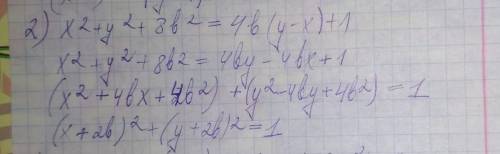 2) x²+y²+8b²=4b(y-x)+1
x²+y²+8b²=4by-4bx+1
(x²+4bx+4b²)+(y²-4by+4b²)=1
(x+2b)²+(y+2b)²=1